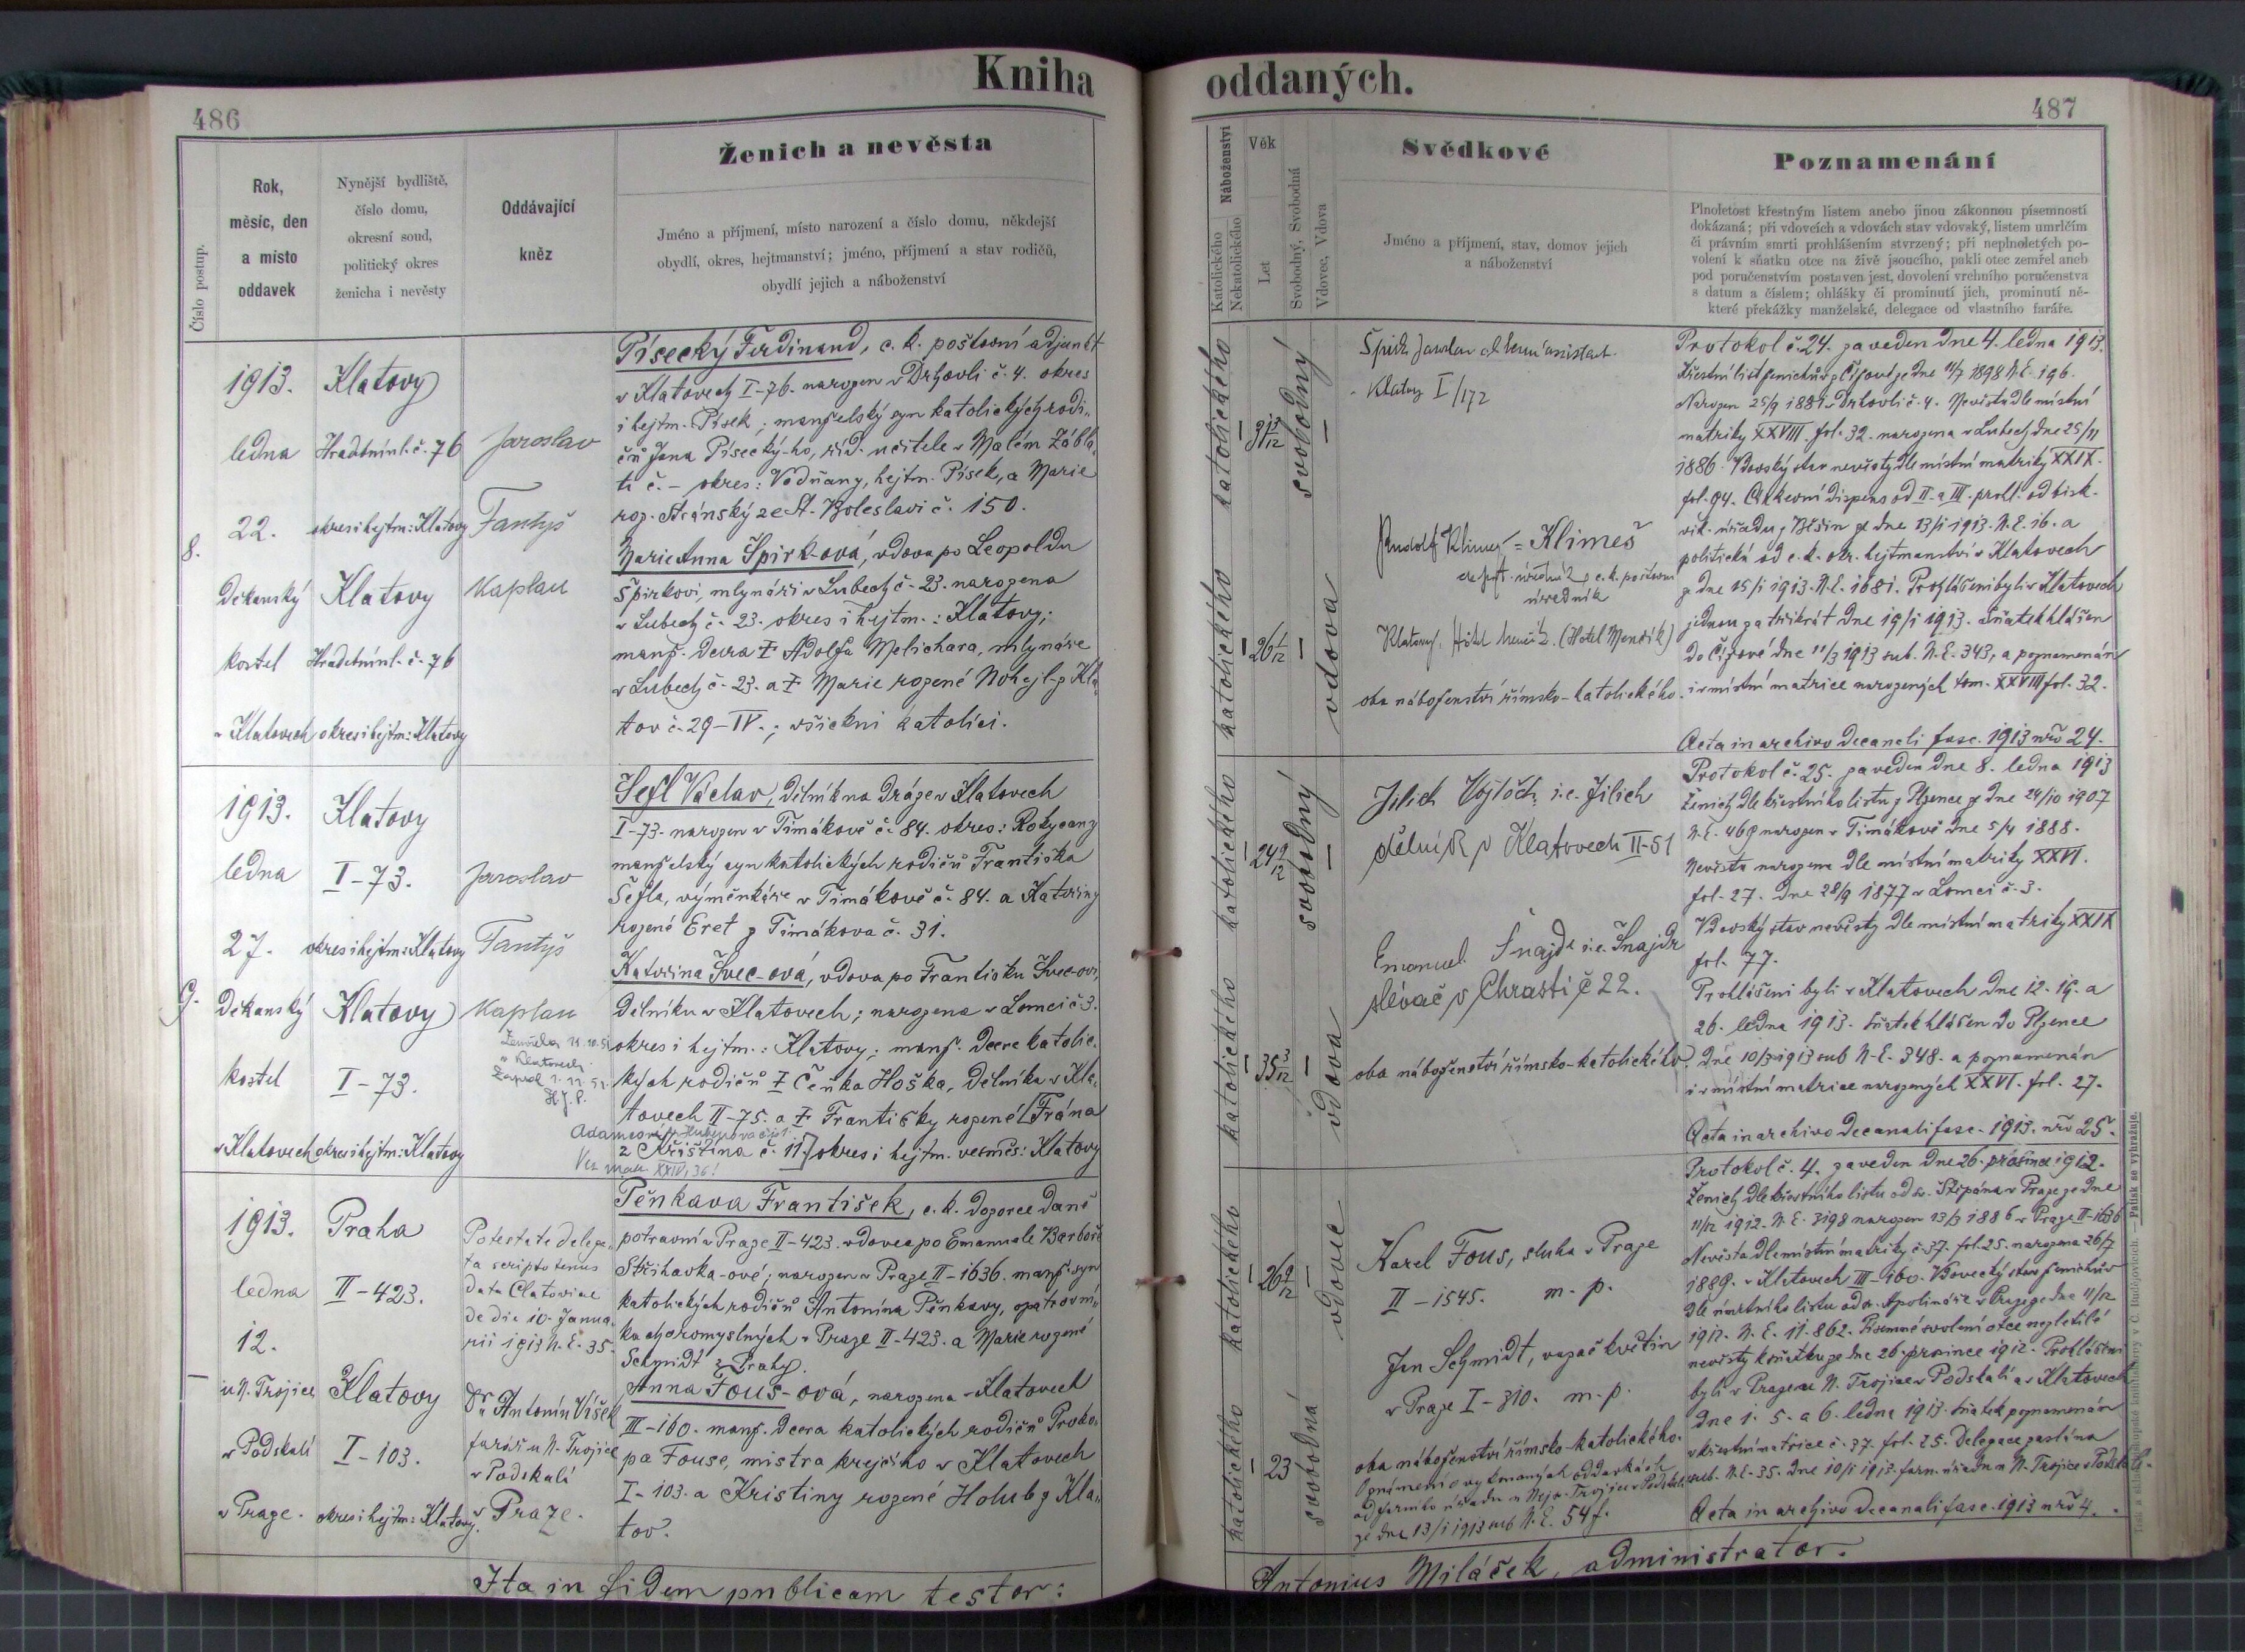 Kniha oddaných.
486
487
Číslo postup.
Rok,
měsíc, den
a místo
oddavek
Nynější bydliště,
číslo domu,
okresní soud,
politický okres
ženicha i nevěsty
Oddávající
kněz
Ženich a nevěsta
Jméno a příjmení, místo narození a číslo domu, někdejší
obydlí, okres, hejtmanství; jméno, příjmení a stav rodičů,
obydlí jejich a náboženství
Náboženství
Katolického
Nekatolického
Věk
Let
Svobodný, Svobodná
Vdovec, Vdova
Svědkové
Jméno a příjmení, stav, domov jejich
a náboženství
Poznamenání
Plnoletost křestným listem anebo jinou zákonnou písemností
dokázaná; při vdovcích a vdovách stav vdovský, listem umrlčím
či právním smrti prohlášením stvrzený; při neplnoletých po-
volení k sňatku otce na živě jsoucího, pakli otec zemřel aneb
pod poručenstvím postaven jest, dovolení vrchního poručenstva
s datum a číslem; ohlášky či prominutí jich, prominutí ně-
které překážky manželské, delegace od vlastního faráře.
8.
1913.
ledna
22.
Děkanský
kostel
v Klatovech
Klatovy
Hradební ul. č. 76
okres i hejtm: Klatovy
Klatovy
Hradební ul. č. 76
okres i hejtm: Klatovy
Jaroslav
Fantyš
Kaplan
Písecký Ferdinand, c. k. poštovní adjunkt
v Klatovech I-76. narozen v Drhovli č. 4. okres
i hejtm. Písek; manželský syn katolických rodi-
čů Jana Písecký-ho, říd. učitele v Malém Zábla-
tí č. – okres: Vodňany, hejtm. Písek, a Marie
roz. Stránský ze St. Boleslavi č. 150.
Marie Anna Špirk-ová, vdova po Leopoldu
Špirkovi, mlynáři v Lubech č. 23. narozena
v Lubech č. 23. okres i hejtm.: Klatovy;
manž. dcera † Adolfa Melichara, mlynáře
v Lubech č. 23. a † Marie rozené Nohejl z Kla-
tov č. 29-IV.; všichni katolíci.
katolického
31
svobodný
katolického
26
vdova
Klatovy I/172
= Klimeš
c. k. poštovní
úředník
Klatovy, (Hotel Menšík)
oba náboženství římsko-katolického.
Protokol č. 24. zaveden dne 4. ledna 1913.
Křestní list ženichův z Čížové ze dne 11/7 1898 N.E. 196.
Narozen 25/9 1881 v Drhovli č. 4. Nevěsta dle místní
matriky XXVIII. fol. 32. narozena v Lubech dne 25/11
1886. Vdovský stav nevěsty dle místní matriky XXIX.
fol. 94. Církevní dispens od II. a III. prohl. od bisk.
vik. úřadu z Běšin ze dne 13/1 1913. N.E. 16. a
politická od c. k. okr. hejtmanství v Klatovech
z dne 15/1 1913. N.E. 1681. Prohlášeni byli v Klatovech
jednou za třikrát dne 19/1 1913. Sňatek hlášen
do Čížové dne 11/3 1913 sub. N.E. 343, a poznamenán
i v místní matrice narozených tom. XXVIII fol. 32.
Acta in archivo decanali fasc. 1913 nro 24.
9.
1913.
ledna
27.
Děkanský
kostel
v Klatovech
Klatovy
I-73.
okres i hejtm: Klatovy
Klatovy
I-73.
okres i hejtm: Klatovy
Jaroslav
Fantyš
Kaplan
v Klatovech
Šefl Václav, dělník na dráze v Klatovech
I-73. narozen v Timákově č. 84. okres: Rokycany
manželský syn katolických rodičů Františka
Šefla, výměnkáře v Timákově č. 84. a Kateřiny
rozené Eret z Timákova č. 31.
Kateřina Švec-ová, vdova po Františku Švec-ovi,
dělníku v Klatovech; narozena v Lomci č. 3.
okres i hejtm.: Klatovy; manž. dcera katolic-
kých rodičů † Čeňka Hoška, dělníka v Kla-
tovech II-75. a † Františky rozené [Frána
z Křištína č. 11.] okres i hejtm. vesměs: Klatovy
katolického
24 9/12
svobodný
katolického
35 3/12
vdova
Jilich Vojtěch, i.e. Jilich
dělník v Klatovech II-51
Emanuel Šnajdr i.e. Šnajdr
slévač v Chrásti č 22.
oba náboženství římsko-katolického.
Protokol č. 25. zaveden dne 8. ledna 1913
Ženich dle křestního listu z Plzence ze dne 24/10 1907
N.E. 469 narozen v Timákově dne 5/4 1888.
Nevěsta narozena dle místní matriky XXVI.
fol. 27. dne 28/9 1877 v Lomci č. 3.
Vdovský stav nevěsty dle místní matriky XXIX
fol. 77.
Prohlášeni byli v Klatovech dne 12. 19. a
26. ledna 1913. Sňatek hlášen do Plzence
dne 10/3 1913 sub N.E. 348. a poznamenán
i v místní matrice narozených XXVI. fol. 27.
Acta in archivo decanali fasc. 1913. nro 25.
–
1913.
ledna
12.
u N. Trojice
v Podskalí
v Praze.
Praha
II-423.
Klatovy
I-103.
okres i hejtm: Klatovy.
Potestate delega-
ta scripto tenus
data Clatoviae
de die 10. Janua-
rii 1913 N.E. 35.
Dr. Antonín Víšek
farář u N. Trojice
v Podskalí
v Praze.
Pěnkava František, c. k. dozorce daně
potravní v Praze II-423. vdovec po Emanuele Barboře
Střihavka-ové; narozen v Praze II-1636. manž. syn
katolických rodičů Antonína Pěnkavy, opatrovní-
ka choromyslných v Praze II-423. a Marie rozené
Schmidt z Prahy.
Anna Fous-ová, narozena v Klatovech
III-160. manž. dcera katolických rodičů Proko-
pa Fouse, mistra krejčího v Klatovech
I-103. a Kristiny rozené Holub z Kla-
tov.
katolického
26 9/12
vdovec
katolického
23
svobodná
Karel Fous, sluha v Praze
II-1545. m. p.
Jan Schmidt, vazač květin
v Praze I-310. m. p.
oba náboženství římsko-katolického.
Oznámení o vykonaných oddavkách
od farního úřadu u Nejsv. Trojice v Podskalí
ze dne 13/1 1913 sub N.E. 54 f.
Protokol č. 4. zaveden dne 26. prosince 1912.
Ženich dle křestního listu od sv. Štěpána v Praze ze dne
11/12 1912. N.E. 3198 narozen 13/3 1886 v Praze II-1636
Nevěsta dle místní matriky č. 37. fol. 25. narozena 26/7
1889. v Klatovech III-160. Vdovecký stav ženichův
dle úmrtního listu od sv. Apolináře v Praze ze dne 11/12
1912. N.E. 11.862. Písemné svolení otce nezletilé
nevěsty k sňatku ze dne 26. prosince 1912. Prohlášeni
byli v Praze u N. Trojice v Podskalí a v Klatovech
dne 1. 5. a 6. ledna 1913. Sňatek poznamenán
v křestní matrice č. 37. fol. 25. Delegace zaslána
sub. N.E. 35. dne 10/1 1913. farn. úřadu u N. Trojice v Podskalí.
Acta in archivo decanali fasc. 1913 nro 4.
Ita in fidem publicam testor:
Antonius Miláček, administrator.